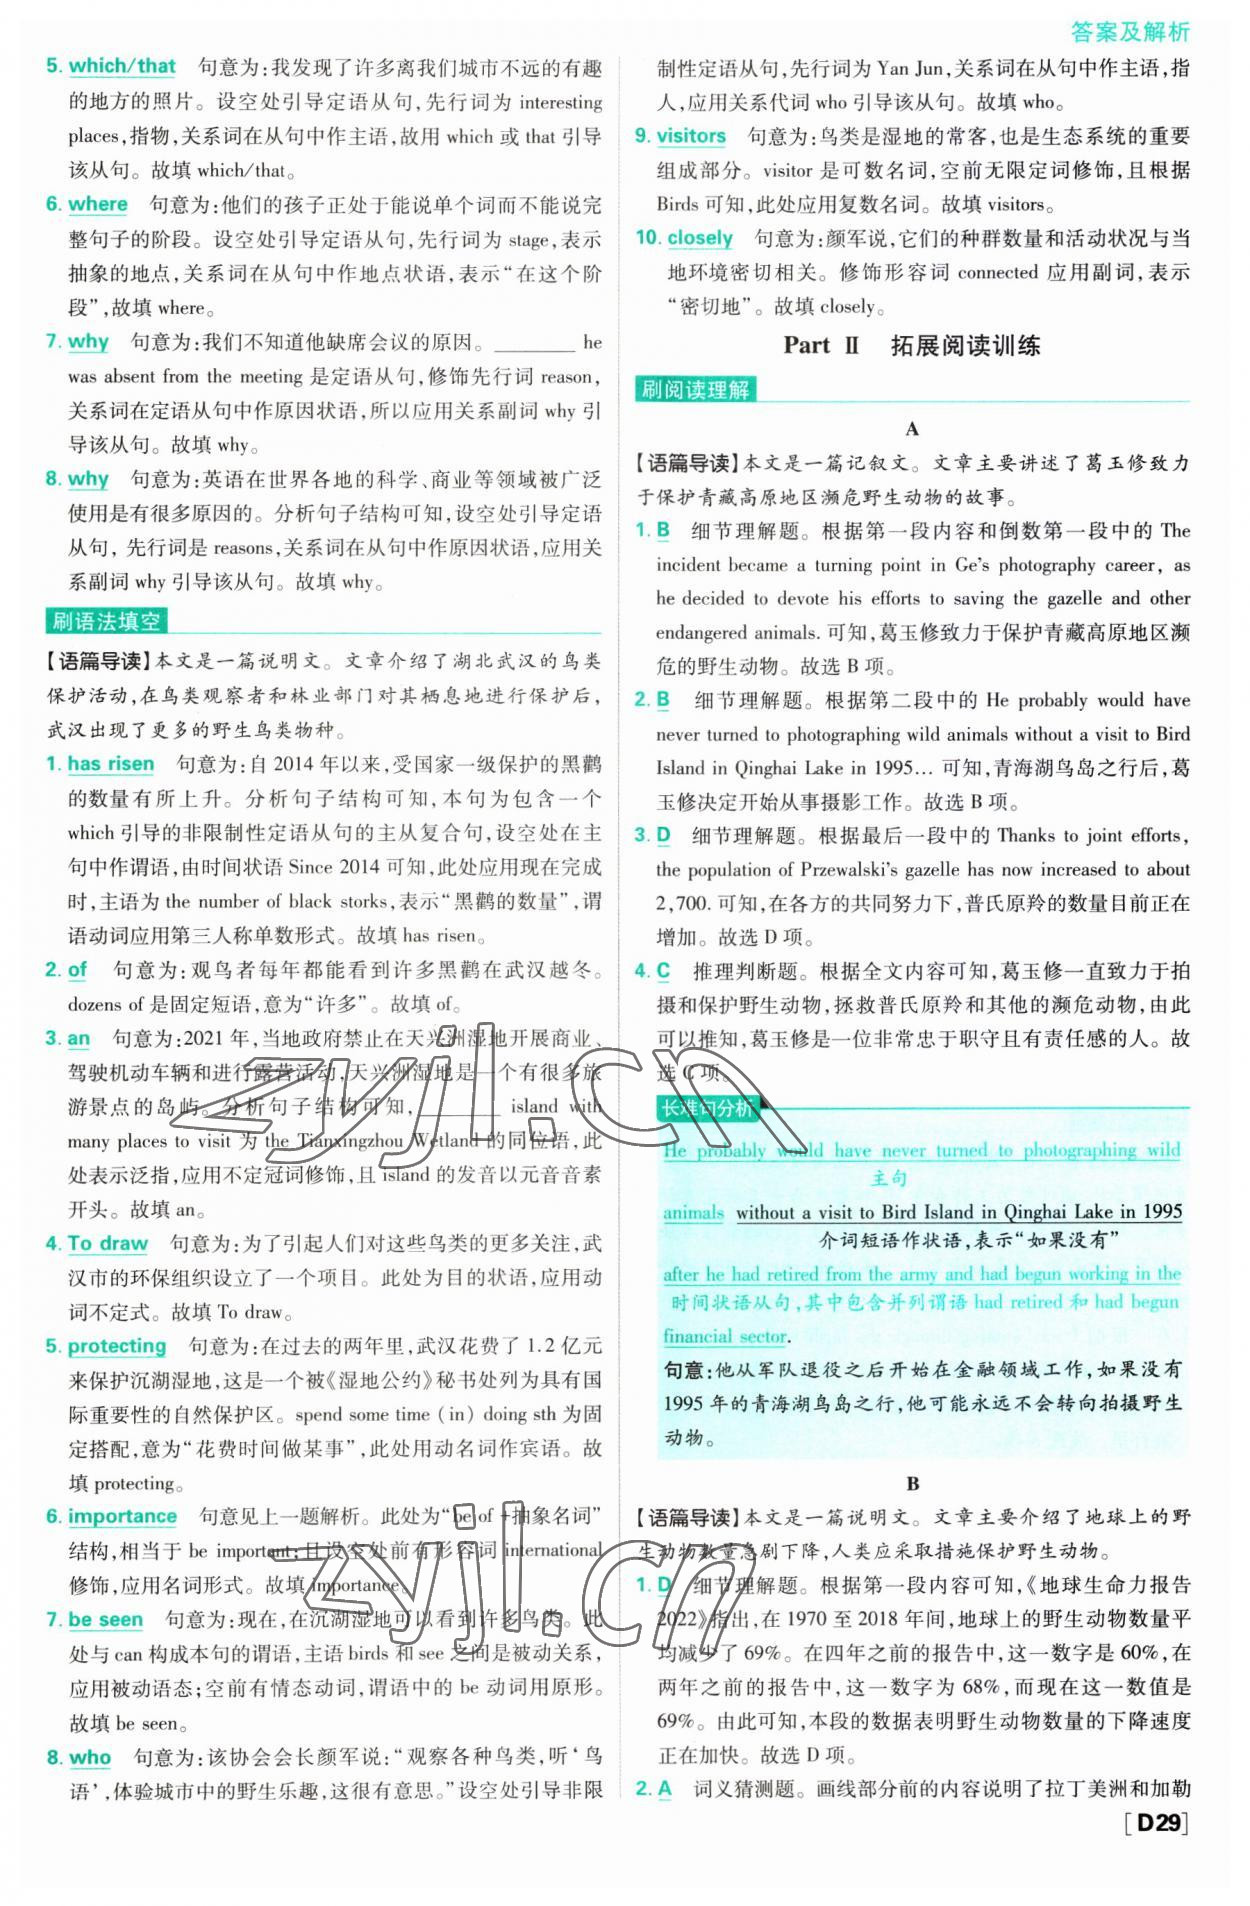 答案及解析
5. which/that 句意为:我发现了许多离我们城市不远的有趣
的地方的照片。设空处引导定语从句,先行词为 interesting
places,指物,关系词在从句中作主语,故用 which 或 that 引导
该从句。故填 which/that。
6. where 句意为:他们的孩子正处于能说单个词而不能说完
整句子的阶段。设空处引导定语从句,先行词为 stage,表示
抽象的地点,关系词在从句中作地点状语,表示“在这个阶
段”,故填 where。
7. why 句意为:我们不知道他缺席会议的原因。________ he
was absent from the meeting 是定语从句,修饰先行词 reason,
关系词在定语从句中作原因状语,所以应用关系副词 why 引
导该从句。故填 why。
8. why 句意为:英语在世界各地的科学、商业等领域被广泛
使用是有很多原因的。分析句子结构可知,设空处引导定语
从句, 先行词是 reasons,关系词在从句中作原因状语,应用关
系副词 why 引导该从句。故填 why。
刷语法填空
【语篇导读】本文是一篇说明文。文章介绍了湖北武汉的鸟类
保护活动,在鸟类观察者和林业部门对其栖息地进行保护后,
武汉出现了更多的野生鸟类物种。
1. has risen 句意为:自 2014 年以来,受国家一级保护的黑鹳
的数量有所上升。分析句子结构可知,本句为包含一个
which 引导的非限制性定语从句的主从复合句,设空处在主
句中作谓语,由时间状语 Since 2014 可知,此处应用现在完成
时,主语为 the number of black storks,表示“黑鹳的数量”,谓
语动词应用第三人称单数形式。故填 has risen。
2. of 句意为:观鸟者每年都能看到许多黑鹳在武汉越冬。
dozens of 是固定短语,意为“许多”。故填 of。
3. an 句意为:2021 年,当地政府禁止在天兴洲湿地开展商业、
驾驶机动车辆和进行露营活动,天兴洲湿地是一个有很多旅
游景点的岛屿。分析句子结构可知,________ island with
many places to visit 为 the Tianxingzhou Wetland 的同位语,此
处表示泛指,应用不定冠词修饰,且 island 的发音以元音音素
开头。故填 an。
4. To draw 句意为:为了引起人们对这些鸟类的更多关注,武
汉市的环保组织设立了一个项目。此处为目的状语,应用动
词不定式。故填 To draw。
5. protecting 句意为:在过去的两年里,武汉花费了 1.2 亿元
来保护沉湖湿地,这是一个被《湿地公约》秘书处列为具有国
际重要性的自然保护区。spend some time (in) doing sth 为固
定搭配,意为“花费时间做某事”,此处用动名词作宾语。故
填 protecting。
6. importance 句意见上一题解析。此处为“be of +抽象名词”
结构,相当于 be important;且设空处前有形容词 international
修饰,应用名词形式。故填 importance。
7. be seen 句意为:现在,在沉湖湿地可以看到许多鸟类。此
处与 can 构成本句的谓语,主语 birds 和 see 之间是被动关系,
应用被动语态;空前有情态动词,谓语中的 be 动词用原形。
故填 be seen。
8. who 句意为:该协会会长颜军说:“观察各种鸟类,听‘鸟
语’,体验城市中的野生乐趣,这很有意思。”设空处引导非限
制性定语从句,先行词为 Yan Jun,关系词在从句中作主语,指
人,应用关系代词 who 引导该从句。故填 who。
9. visitors 句意为:鸟类是湿地的常客,也是生态系统的重要
组成部分。visitor 是可数名词,空前无限定词修饰,且根据
Birds 可知,此处应用复数名词。故填 visitors。
10. closely 句意为:颜军说,它们的种群数量和活动状况与当
地环境密切相关。修饰形容词 connected 应用副词,表示
“密切地”。故填 closely。
Part Ⅱ 拓展阅读训练
刷阅读理解
A
【语篇导读】本文是一篇记叙文。文章主要讲述了葛玉修致力
于保护青藏高原地区濒危野生动物的故事。
1. B 细节理解题。根据第一段内容和倒数第一段中的 The
incident became a turning point in Ge's photography career, as
he decided to devote his efforts to saving the gazelle and other
endangered animals. 可知,葛玉修致力于保护青藏高原地区濒
危的野生动物。故选 B 项。
2. B 细节理解题。根据第二段中的 He probably would have
never turned to photographing wild animals without a visit to Bird
Island in Qinghai Lake in 1995... 可知,青海湖鸟岛之行后,葛
玉修决定开始从事摄影工作。故选 B 项。
3. D 细节理解题。根据最后一段中的 Thanks to joint efforts,
the population of Przewalski's gazelle has now increased to about
2,700. 可知,在各方的共同努力下,普氏原羚的数量目前正在
增加。故选 D 项。
4. C 推理判断题。根据全文内容可知,葛玉修一直致力于拍
摄和保护野生动物,拯救普氏原羚和其他的濒危动物,由此
可以推知,葛玉修是一位非常忠于职守且有责任感的人。故
选 C 项。
长难句分析
He probably would have never turned to photographing wild
主句
animals without a visit to Bird Island in Qinghai Lake in 1995
介词短语作状语,表示“如果没有”
after he had retired from the army and had begun working in the
时间状语从句,其中包含并列谓语 had retired 和 had begun
financial sector.
句意:他从军队退役之后开始在金融领域工作,如果没有
1995 年的青海湖鸟岛之行,他可能永远不会转向拍摄野生
动物。
B
【语篇导读】本文是一篇说明文。文章主要介绍了地球上的野
生动物数量急剧下降,人类应采取措施保护野生动物。
1. D 细节理解题。根据第一段内容可知,《地球生命力报告
2022》指出,在 1970 至 2018 年间,地球上的野生动物数量平
均减少了 69%。在四年之前的报告中,这一数字是 60%,在
两年之前的报告中,这一数字为 68%,而现在这一数值是
69%。由此可知,本段的数据表明野生动物数量的下降速度
正在加快。故选 D 项。
2. A 词义猜测题。画线部分前的内容说明了拉丁美洲和加勒
[D29]
zyjl.cn
zyjl.cn